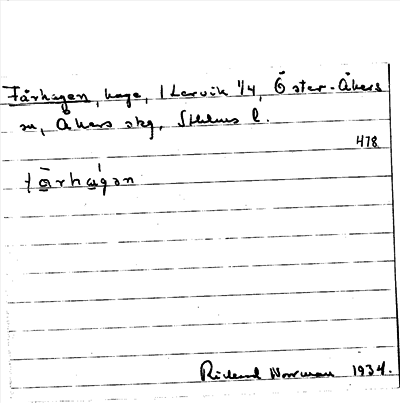 Fårhagen, hage, 1 Lervik 1/4, Öster-Åkers
sn, Åkers skg, Sthlms l.
478
fårhagən
Rickard Norrman 1934.